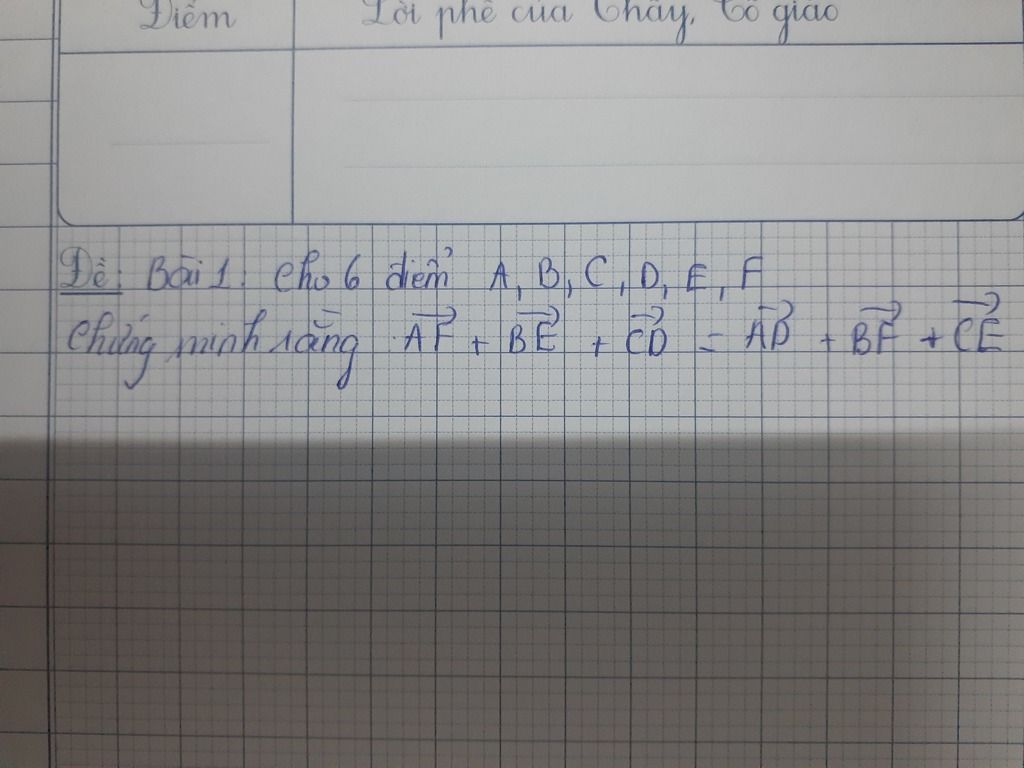 Điểm Lời phê của Thầy, Cô giáo
Đề: Bài 1: Cho 6 điểm A, B, C, D, E, F
Chứng minh rằng \overrightarrow{AF} + \overrightarrow{BE} + \overrightarrow{CD} = \overrightarrow{AD} + \overrightarrow{BF} + \overrightarrow{CE}